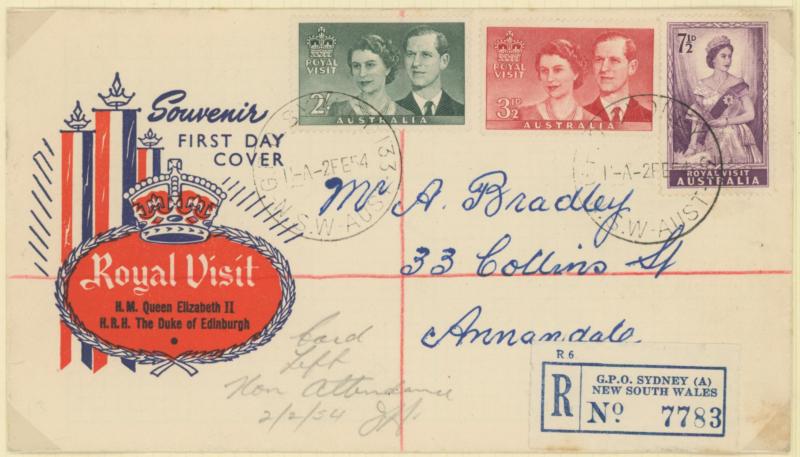 Souvenir
FIRST DAY
COVER
Royal Visit
H.M. Queen Elizabeth II
H.R.H. The Duke of Edinburgh
ROYAL
VISIT
2/-
AUSTRALIA
ROYAL
VISIT
3½D
AUSTRALIA
7½D
ROYAL VISIT
AUSTRALIA
-A-2FE54
N.S.W-AUST
33
-A-2FE
S.W-AUST
Mr A. Bradley
33 Collins St
Annandale
Card
Left
Non Attendance
2/2/54
R 6
R
G.P.O. SYDNEY (A)
NEW SOUTH WALES
No 7783